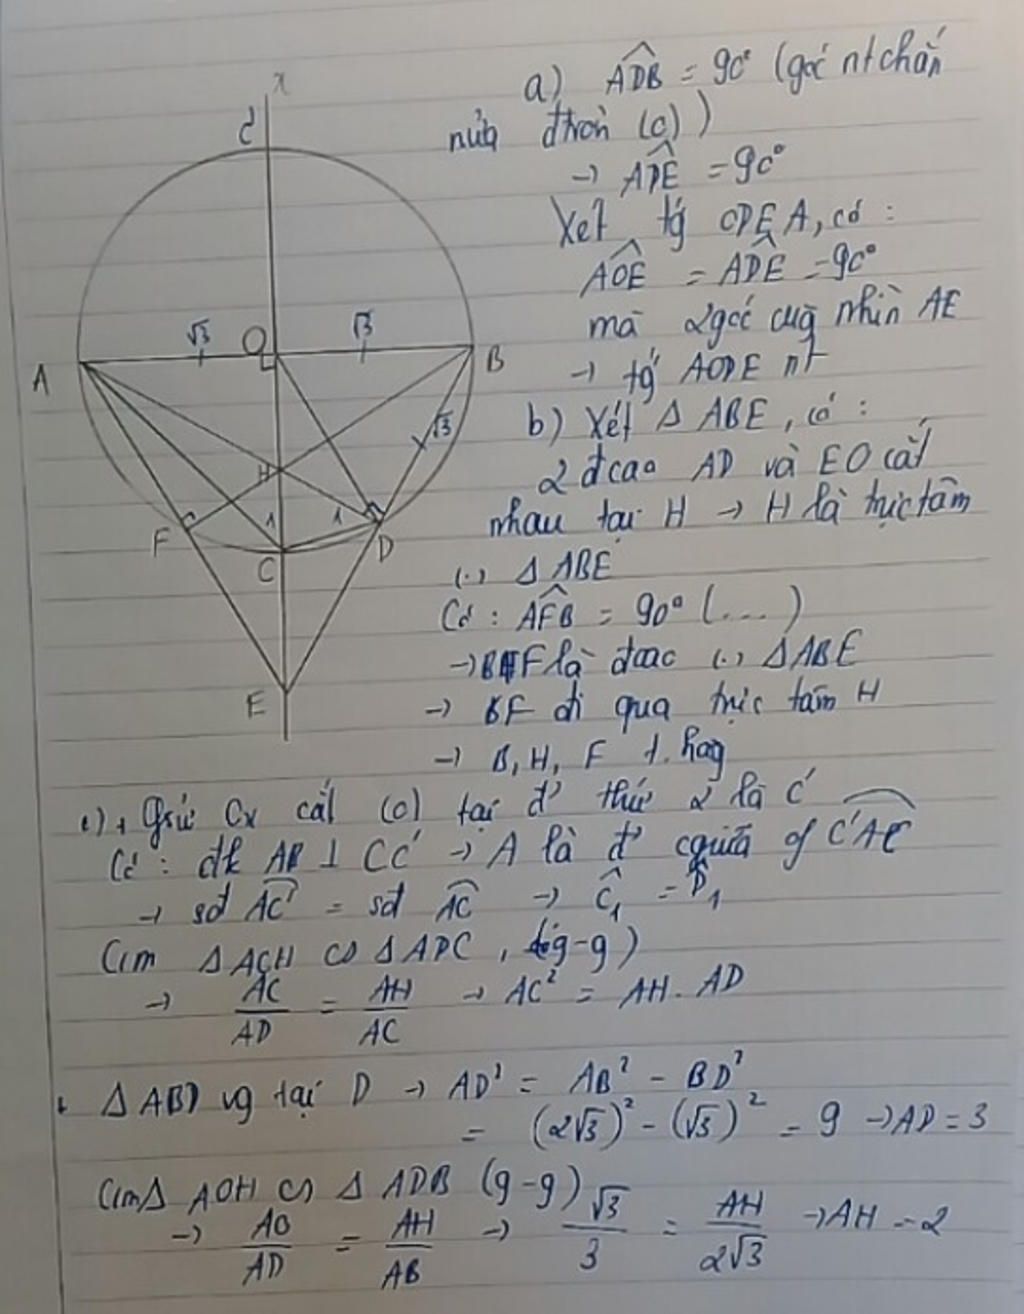 x
C'
√3
O
√3
A
B
√3
H
F
1
1
C
D
E
a) ADB = 90° (góc nt chắn
nửa đtròn (O))
→ ADE = 90°
Xét tg ODEA, có :
AOE = ADE = 90°
mà 2 góc cùg nhìn AE
→ tg AODE nt
b) Xét Δ ABE, có :
2 đcao AD và EO cắt
nhau tại H → H là trực tâm
(.) Δ ABE
Có : AFB = 90° (...)
→ BF là đcao (.) Δ ABE
→ BF đi qua trực tâm H
→ B, H, F t. hàg
c) + Gsử Cx cắt (O) tại đ' thứ 2 là C'
Có : đk AB ⊥ CC' → A là đ' cgiữa of C'AC
→ sđ AC' = sđ AC → C₁ = D₁
C/m Δ ACH ∽ Δ ADC, (g-g)
→ AC/AD = AH/AC → AC² = AH. AD
+ Δ ABD vg tại D → AD² = AB² - BD²
= (2√3)² - (√3)² = 9 → AD = 3
C/m Δ AOH ∽ Δ ADB (g-g)
→ AO/AD = AH/AB → √3/3 = AH/2√3 → AH = 2